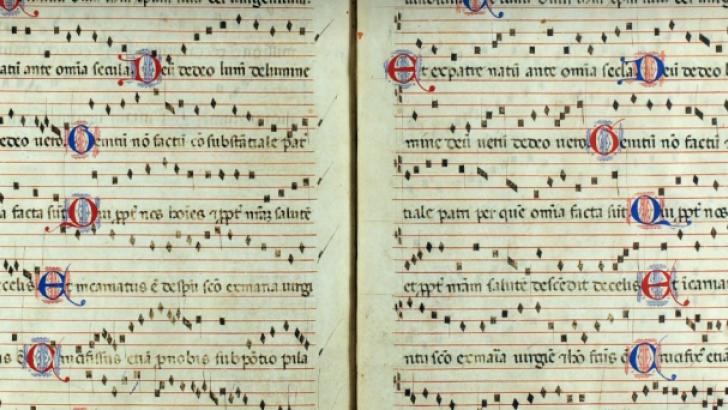 natū ante omīa secula. Deū de deo lum̄ de lumine
deo vero. Genitū nō factū cōsubstātiale pat
a facta sūt. Qui ppt nos hoīes et ppt nr̄m salutē
celis. Et incarnatus ē de spū sc̄o ex maria virgi
s ē. Crucifixus etiā p nobis sub pōtio pila
Et ex patre natū ante omīa secla. Deū de deo l
mine deū verū de deo vero. Genitū nō factū
tiale patri per quē omīa facta sūt. Qui ppt nos
et ppt nrām salutē descēdit de celis. Et īcarna
ritu sc̄o ex maīa virgīe et hō fcūs ē. Crucifix̄ etiā